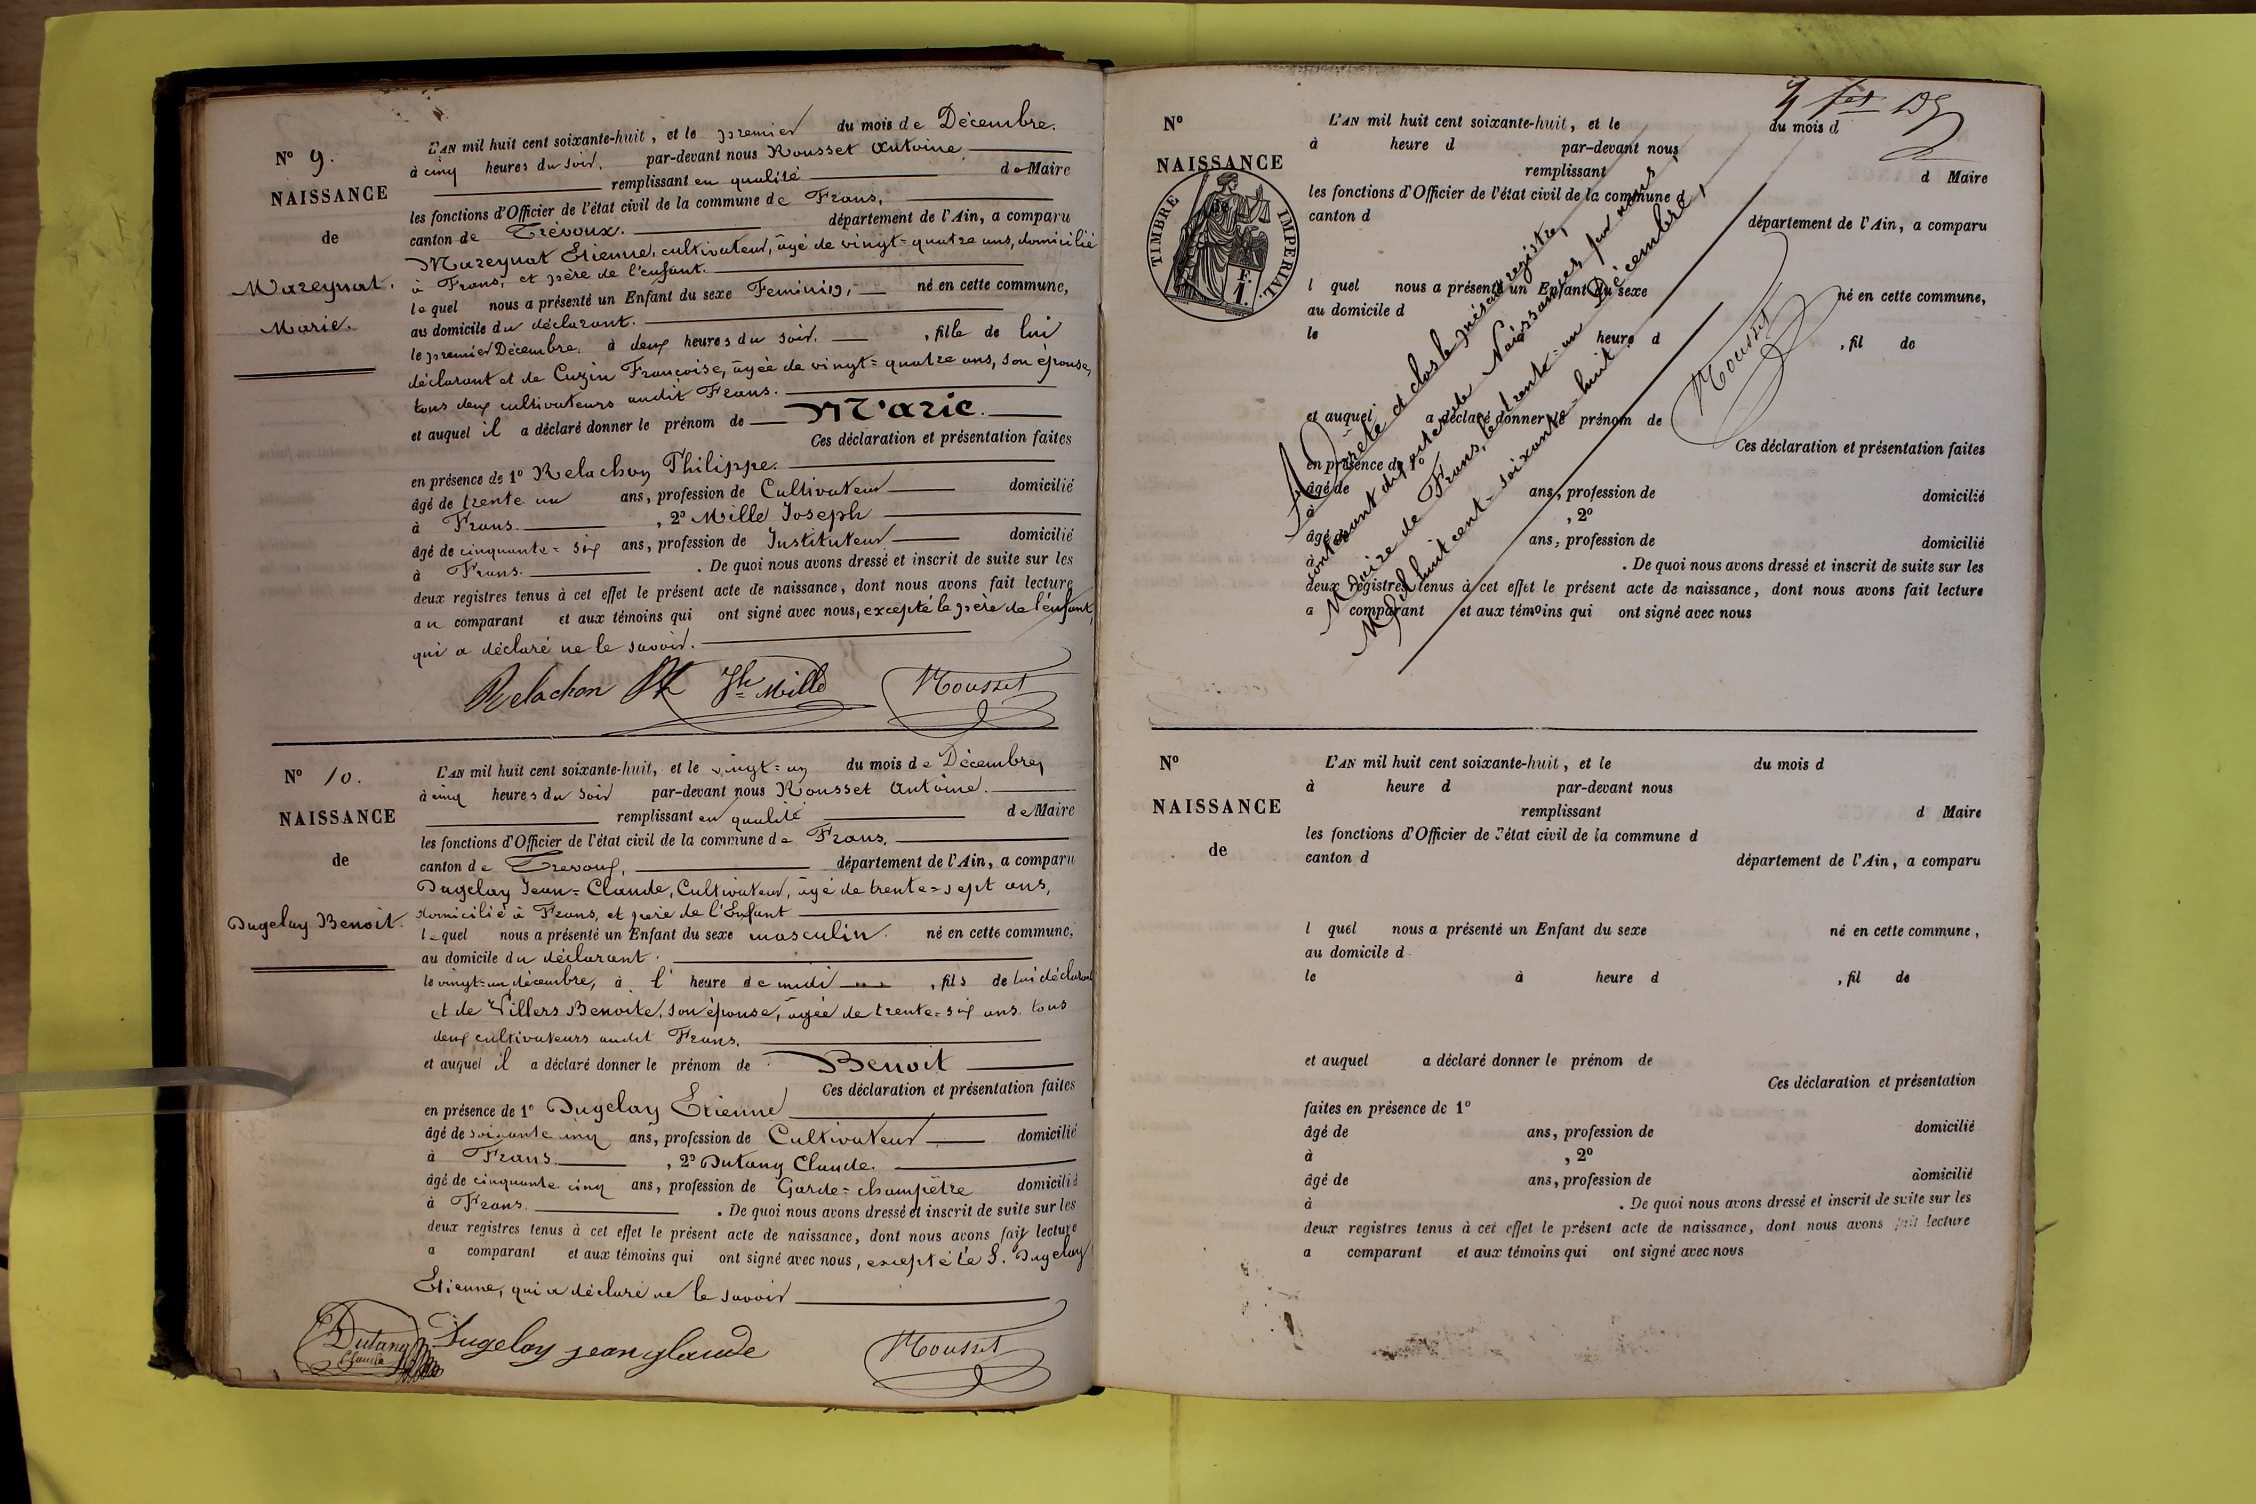 N° 9.
NAISSANCE
de
Mazeynat.
Marie.
L'AN mil huit cent soixante-huit, et le premier du mois de Décembre.
à cinq heures du soir, par-devant nous Rousset Antoine
remplissant en qualité de Maire
les fonctions d'Officier de l'état civil de la commune de Frans,
canton de Trévoux. département de l'Ain, a comparu
Mazeynat Etienne, cultivateur, âgé de vingt=quatre ans, domicilié
à Frans, et père de l'enfant.
lequel nous a présenté un Enfant du sexe Feminin, né en cette commune,
au domicile du déclarant.
le premier Décembre, à deux heures du soir. , fille de lui
déclarant et de Cuzin Françoise, âgée de vingt=quatre ans, son épouse,
tous deux cultivateurs audit Frans.
et auquel il a déclaré donner le prénom de Marie.
Ces déclaration et présentation faites
en présence de 1° Relachon Philippe.
âgé de trente un ans, profession de Cultivateur domicilié
à Frans. , 2° Mille Joseph
âgé de cinquante=six ans, profession de Instituteur domicilié
à Frans. . De quoi nous avons dressé et inscrit de suite sur les
deux registres tenus à cet effet le présent acte de naissance, dont nous avons fait lecture
au comparant et aux témoins qui ont signé avec nous, excepté le père de l'enfant,
qui a déclaré ne le savoir.
Relachon Ph Jh Mille Rousset
N° 10.
NAISSANCE
de
Dugelay Benoit.
L'AN mil huit cent soixante-huit, et le vingt=un du mois de Décembre,
à cinq heures du soir par-devant nous Rousset Antoine.
remplissant en qualité de Maire
les fonctions d'Officier de l'état civil de la commune de Frans,
canton de Trevoux, département de l'Ain, a comparu
Dugelay Jean=Claude, Cultivateur, âgé de trente=sept ans,
domicilié à Frans, et père de l'Enfant
lequel nous a présenté un Enfant du sexe masculin. né en cette commune,
au domicile du déclarant.
le vingt=un décembre, à l' heure de midi , fils de lui déclarant
et de Villers Benoite, son épouse, âgée de trente=six ans. tous
deux cultivateurs audit Frans.
et auquel il a déclaré donner le prénom de Benoit
Ces déclaration et présentation faites
en présence de 1° Dugelay Etienne
âgé de soixante cinq ans, profession de Cultivateur domicilié
à Frans. , 2° Dutang Claude.
âgé de cinquante cinq ans, profession de Garde=champêtre domicilié
à Frans. . De quoi nous avons dressé et inscrit de suite sur les
deux registres tenus à cet effet le présent acte de naissance, dont nous avons fait lecture
a comparant et aux témoins qui ont signé avec nous, excepté le S. Dugelay
Etienne, qui a déclaré ne le savoir
Dutang Claude Dugelay jean glaude Rousset
N°
NAISSANCE
de
TIMBRE IMPERIAL.
F. 1.
L'AN mil huit cent soixante-huit, et le du mois d
à heure d par-devant nous
remplissant d Maire
les fonctions d'Officier de l'état civil de la commune d
canton d département de l'Ain, a comparu
l quel nous a présenté un Enfant du sexe né en cette commune,
au domicile d
le heure d , fil de
et auquel a déclaré donner le prénom de
Ces déclaration et présentation faites
en présence de 1°
âgé de ans, profession de domicilié
à , 2°
âgé de ans, profession de domicilié
à . De quoi nous avons dressé et inscrit de suite sur les
deux registres tenus à cet effet le présent acte de naissance, dont nous avons fait lecture
a comparant et aux témoins qui ont signé avec nous
Arrêté et clos le présent registre,
contenant dix actes de Naissances, par nous
Maire de Frans, le trente=un Décembre,
Mil huit cent=soixante=huit.
Rousset
N°
NAISSANCE
de
L'AN mil huit cent soixante-huit, et le du mois d
à heure d par-devant nous
remplissant d Maire
les fonctions d'Officier de l'état civil de la commune d
canton d département de l'Ain, a comparu
l quel nous a présenté un Enfant du sexe né en cette commune,
au domicile d
le à heure d , fil de
et auquel a déclaré donner le prénom de
Ces déclaration et présentation
faites en présence de 1°
âgé de ans, profession de domicilié
à , 2°
âgé de ans, profession de domicilié
à . De quoi nous avons dressé et inscrit de suite sur les
deux registres tenus à cet effet le présent acte de naissance, dont nous avons fait lecture
a comparant et aux témoins qui ont signé avec nous